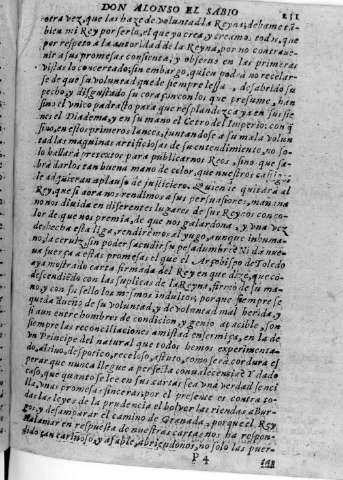 DON ALONSO EL SABIO
251
otra vez, que las haze de voluntad la Reyna; debame tã-
bien mi Rey por serlo, el que yo crea, y creamos todos, que
por respeto a la autoridad de la Reyna, por no contrave-
nir a sus promesas consienta, y observe en las primeras
vistas lo concertado; sin embargo, quien podrà no recelar-
se de que su voluntad, que de siempre lessa, desabrido su
pecho, y disgustado su coraçon con los que presume, han
sino el vnico padrasto para que resplandezca ya en sus sie-
nes el Diadema, y en su mano el Cetro del Imperio: con q̃
si no, en estos primeros lances, juntandose a su mala volun
tad las maquinas artificiosas de su entendimiento, no so-
lo hallarà pretextos para publicarnos Reos, sino que sa-
brà darlos tan buena mano de color, que nuestros castigos
le adquieran aplauso de justiciero. Quien le quitarà al
Rey, que si aora se rendimos a sus persuasiones, mañana
nos divida en diferentes lugares de sus Reynos con co-
lor de que nos premia, de que nos galardona, y vna vez
deshecha esta liga, rendirèmos al yugo, aunque inhuma-
no, la cerviz, sin poder sacudir su pesadumbre? Ni dà nue-
va fuerça a estas promesas el que el Arçobispo de Toledo
aya mostrado carta firmada del Rey en que dize, que cõ-
descendiendo con las suplicas de la Reyna, firmò de su ma-
no, y con su sello los mismos indultos; porque siempre se
queda dueño de su voluntad, y de voluntad mal herida, y
si aun entre hombres de condicion, y genio apacible, son
siempre las reconciliaciones amistad enfermiza, en la de
vn Principe del natural que todos hemos experimenta-
do, altivo, despotico, receloso, astuto, como serà cordura es
perar que nunca llegue a perfecta convalecencia? Y dado
caso, que quanto se lee en sus cartas sea vna verdad senci
lla, vnas promesas sinceras, por el presente es contra to-
das las leyes de la prudencia el bolver las riendas a Bur-
gos, y desamparar el camino de Granada, porque el Rey
Alamar en respuesta de nuestras cartas nos ha respon-
dido tan cariñoso, y afable, abriendonos, no solo las puer-
P 4